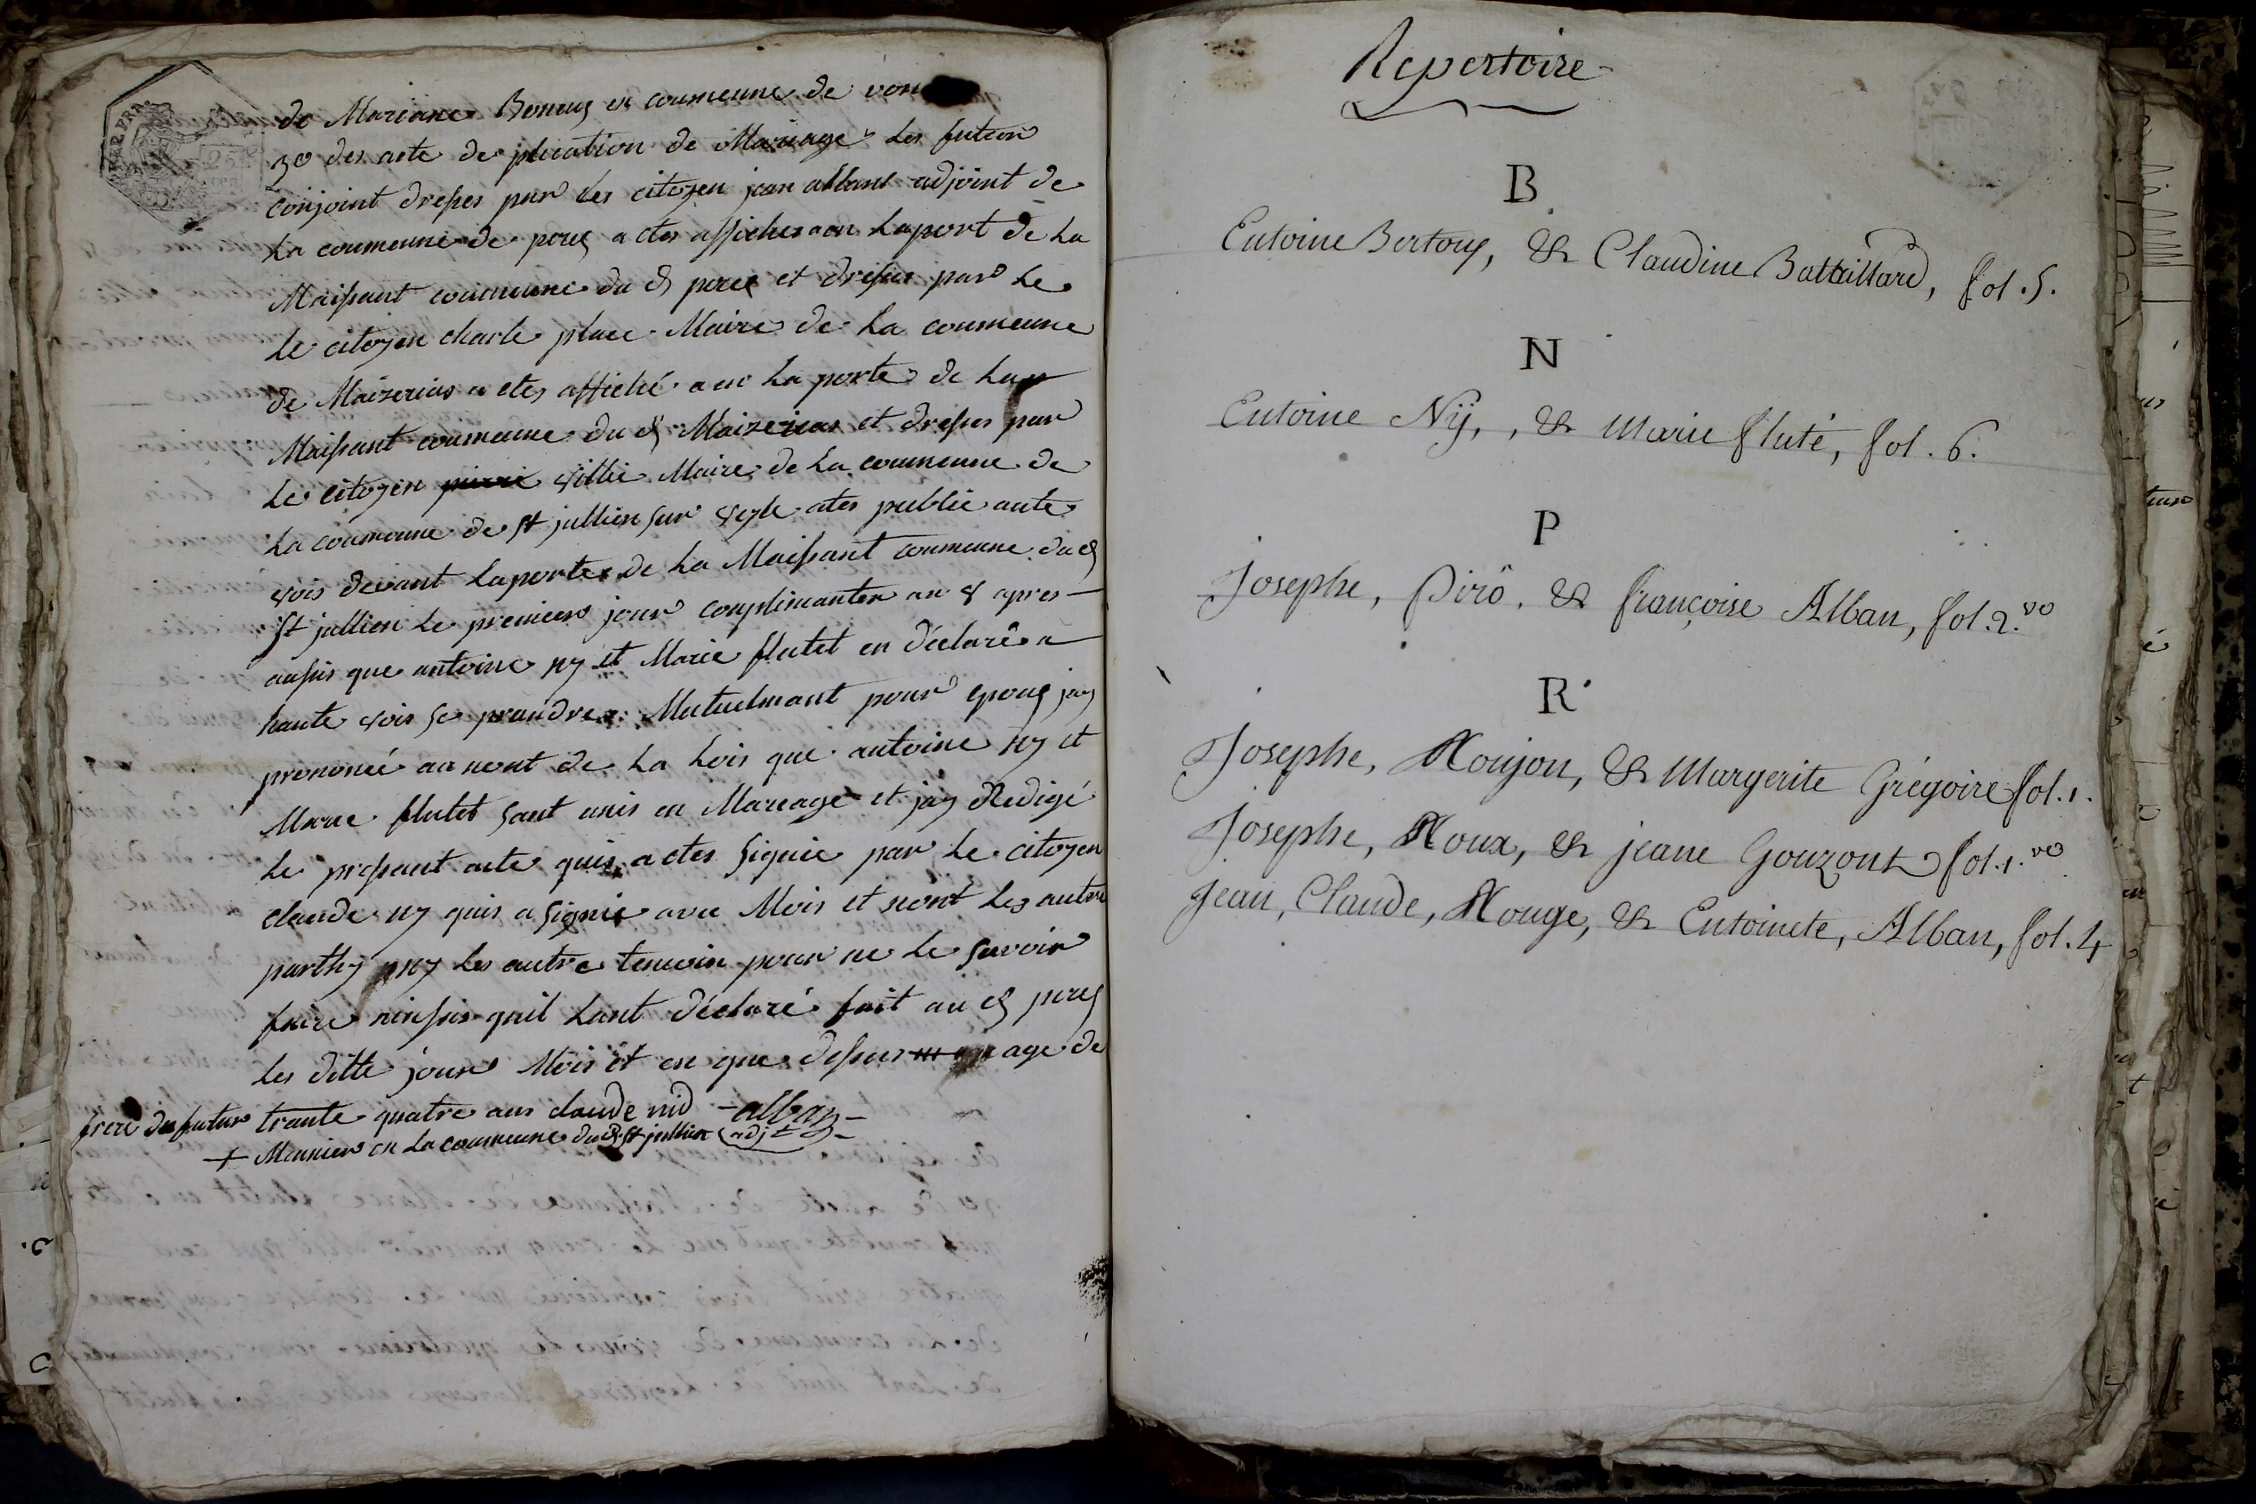 de Mariane en coumeune de
3e des acte de plication de Mariage Les futeur
conjoint dreses par les citoyen jean alband adjoint de
La coumeune de perex a etes affiches a en Laport de La
Maisant coumeune du d perex et dreses par Le
Le citoyen charle place Maire de La coumeune
de Maizerias a etes affiché a en La porte de La
Maisant coumeune du d Maizerias et dreses par
Le citoyen villie Maire de La coumeune de
La coumeune de st jullien sur veyle ates publie aute
vois devant Laportes de La Maisant coumeune du d
st jullien Le premiere jour complimanter an 8 apres
ausis que antoine ny et Marie flutet en déclarée a
haute vois se prandre Mutuelmant pour epoux jay
prononcé au nont de La Lois que antoine ny et
Marie flutet sont unis en Mareage et jay Redigé
Le presant acte quis a etes signie par Le citoyen
claude ny quis a signie avec Mois et nont Les autre
parthy ny Les autre temoin pour ne Le savoir
faire ainsis quil Lont déclaré fait au d perex
Les ditte jour Mois et en que desus age de
frere du futur trante quatre ans claude nid - alban -
+ Meunier en La coumeune du d st jullien adjt
Repertoire
B
Entoine Bertouy, & Claudine Battaillard, fol. 5.
N
Entoine Nÿ, , & Marie fluté, fol. 6.
P
Josephe, Pirô, & françoise Alban, fol. 2. vo
R
Josephe, Roujon, & Margerite Grégoire fol. 1.
Josephe, Roux, & jeane Gouzont fol. 1. vo
Jean, Claude, Rouge, & Entoinete, Alban, fol. 4